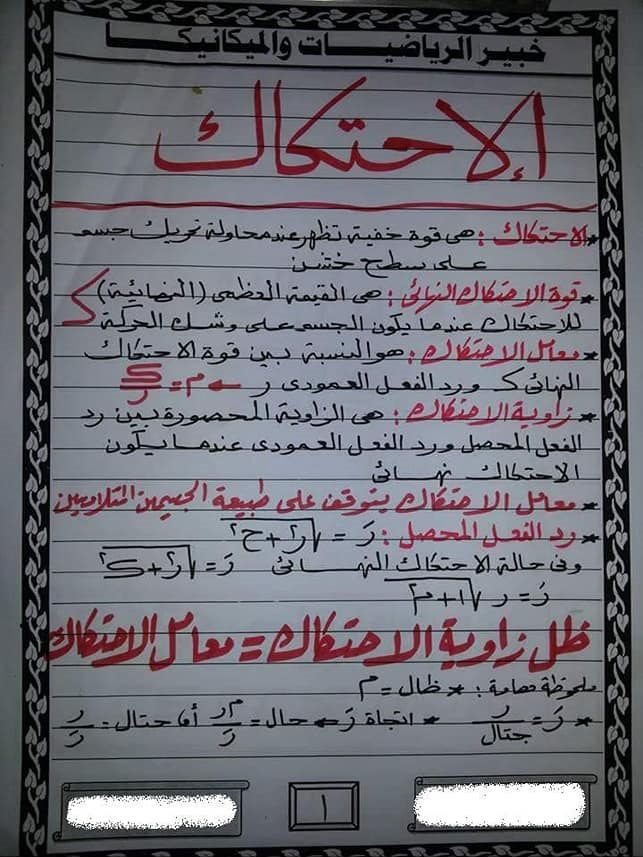 خبير الرياضيات والميكانيكا
الاحتكاك
* الاحتكاك : هى قوة خفية تظهر عند محاولة تحريك جسم
على سطح خشن
* قوة الاحتكاك النهائى : هى القيمة العظمى (النهائية)
للاحتكاك عندما يكون الجسم على وشك الحركة
* معامل الاحتكاك : هو النسبة بين قوة الاحتكاك
النهائى ك ورد الفعل العمودى ر ← م = ك/ر
* زاوية الاحتكاك : هى الزاوية المحصورة بين رد
الفعل المحصل ورد الفعل العمودى عندما يكون
الاحتكاك نهائى
* معامل الاحتكاك يتوقف على طبيعة الجسمين المتلامسين
* رد الفعل المحصل : رَ = √(ر٢ + ح٢)
وفى حالة الاحتكاك النهائى رَ = √(ر٢ + ك٢)
رَ = ر √(١ + م٢)
ظل زاوية الاحتكاك = معامل الاحتكاك
ملحوظة هامة : * ظال = م
* رَ = ر/جتال * اتجاة رَ ← حال = م ر/رَ أ، حتال = ر/رَ
١